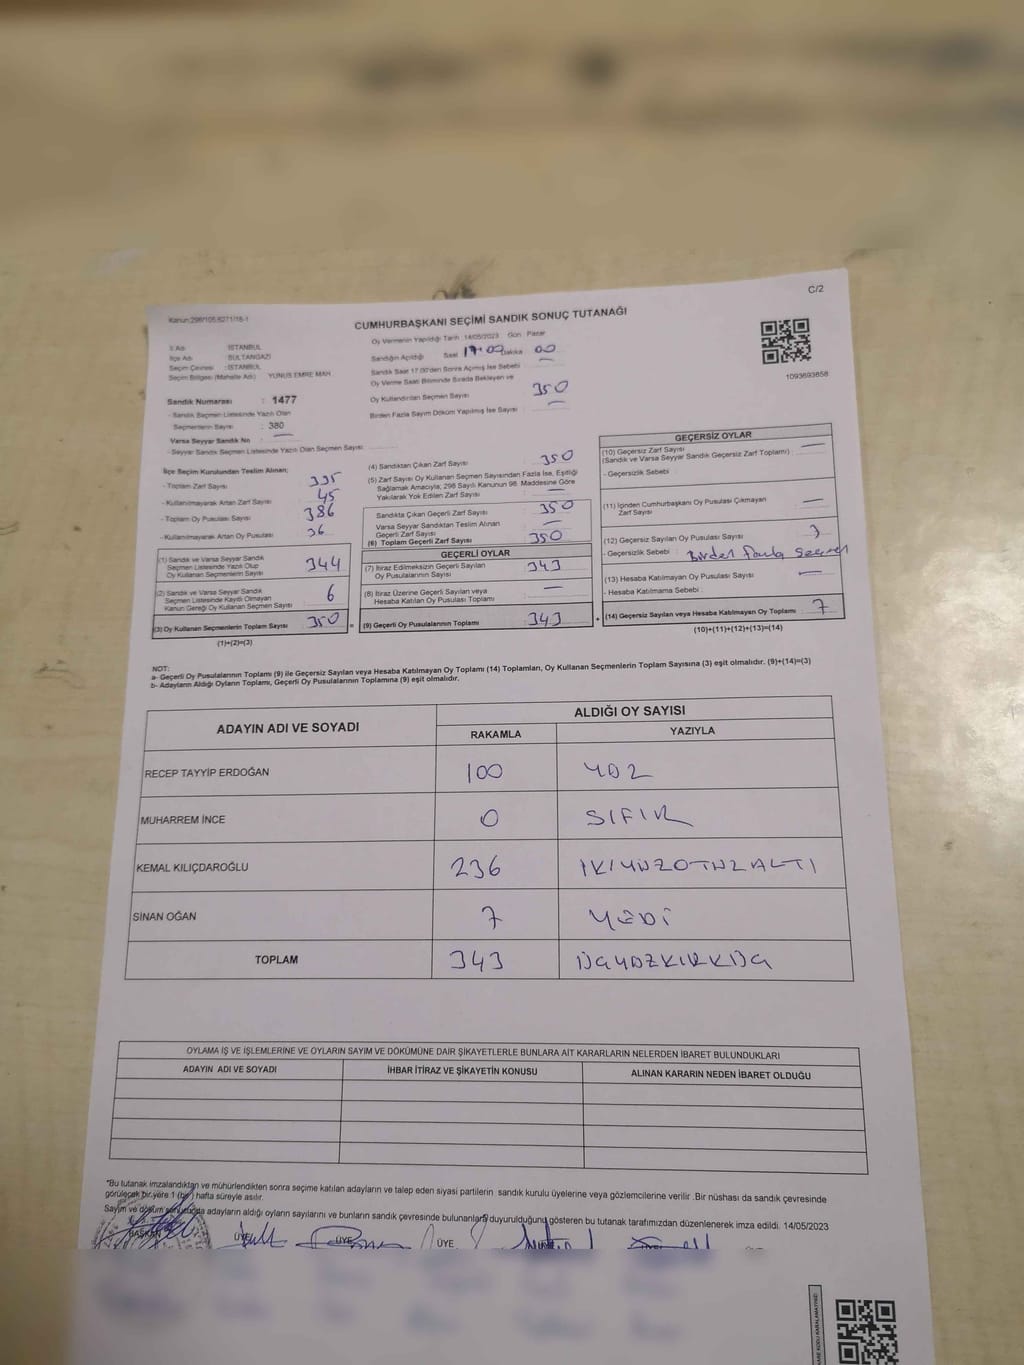 C/2
Kanun:298/105.6271/18-1
CUMHURBAŞKANI SEÇİMİ SANDIK SONUÇ TUTANAĞI
İl Adı : İSTANBUL
İlçe Adı : SULTANGAZİ
Seçim Çevresi : İSTANBUL
Seçim Bölgesi (Mahalle Adı) : YUNUS EMRE MAH.
Sandık Numarası : 1477
- Sandık Seçmen Listesinde Yazılı Olan
Seçmenlerin Sayısı : 380
Varsa Seyyar Sandık No : —
- Seyyar Sandık Seçmen Listesinde Yazılı Olan Seçmen Sayısı :
Oy Vermenin Yapıldığı Tarih :14/05/2023 Gün : Pazar
Sandığın Açıldığı Saat 17:00 Dakika 00
Sandık Saat 17.00'den Sonra Açılmış İse Sebebi : —
Oy Verme Saati Bitiminde Sırada Bekleyen ve
Oy Kullandırılan Seçmen Sayısı : 350
Birden Fazla Sayım Döküm Yapılmış İse Sayısı : —
1093693858
İlçe Seçim Kurulundan Teslim Alınan;
- Toplam Zarf Sayısı : 335
- Kullanılmayarak Artan Zarf Sayısı : 45
- Toplam Oy Pusulası Sayısı : 386
- Kullanılmayarak Artan Oy Pusulası : 36
(1) Sandık ve Varsa Seyyar Sandık
Seçmen Listesinde Yazılı Olup
Oy Kullanan Seçmenlerin Sayısı : 344
(2) Sandık ve Varsa Seyyar Sandık
Seçmen Listesinde Kayıtlı Olmayan
Kanun Gereği Oy Kullanan Seçmen Sayısı : 6
(3) Oy Kullanan Seçmenlerin Toplam Sayısı : 350
(1)+(2)=(3)
(4) Sandıktan Çıkan Zarf Sayısı : 350
(5) Zarf Sayısı Oy Kullanan Seçmen Sayısından Fazla İse, Eşitliği
Sağlamak Amacıyla, 298 Sayılı Kanunun 98. Maddesine Göre
Yakılarak Yok Edilen Zarf Sayısı : —
Sandıkta Çıkan Geçerli Zarf Sayısı : 350
Varsa Seyyar Sandıktan Teslim Alınan
Geçerli Zarf Sayısı : —
(6) Toplam Geçerli Zarf Sayısı : 350
GEÇERLİ OYLAR
(7) İtiraz Edilmeksizin Geçerli Sayılan
Oy Pusulalarının Sayısı : 343
(8) İtiraz Üzerine Geçerli Sayılan veya
Hesaba Katılan Oy Pusulası Toplamı : —
= (9) Geçerli Oy Pusulalarının Toplamı : 343 +
GEÇERSİZ OYLAR
(10) Geçersiz Zarf Sayısı : —
(Sandık ve Varsa Seyyar Sandık Geçersiz Zarf Toplamı)
- Geçersizlik Sebebi :
(11) İçinden Cumhurbaşkanı Oy Pusulası Çıkmayan
Zarf Sayısı : —
(12) Geçersiz Sayılan Oy Pusulası Sayısı : 7
- Geçersizlik Sebebi : Birden fazla
(13) Hesaba Katılmayan Oy Pusulası Sayısı : —
- Hesaba Katılmama Sebebi :
(14) Geçersiz Sayılan veya Hesaba Katılmayan Oy Toplamı : 7
(10)+(11)+(12)+(13)=(14)
NOT:
a- Geçerli Oy Pusulalarının Toplamı (9) ile Geçersiz Sayılan veya Hesaba Katılmayan Oy Toplamı (14) Toplamları, Oy Kullanan Seçmenlerin Toplam Sayısına (3) eşit olmalıdır. (9)+(14)=(3)
b- Adayların Aldığı Oyların Toplamı, Geçerli Oy Pusulalarının Toplamına (9) eşit olmalıdır.
ADAYIN ADI VE SOYADI
ALDIĞI OY SAYISI
RAKAMLA YAZIYLA
RECEP TAYYİP ERDOĞAN 100 YÜZ
MUHARREM İNCE 0 SIFIR
KEMAL KILIÇDAROĞLU 236 İKİYÜZOTUZALTI
SİNAN OĞAN 7 YEDİ
TOPLAM 343 ÜÇYÜZKIRKÜÇ
OYLAMA İŞ VE İŞLEMLERİNE VE OYLARIN SAYIM VE DÖKÜMÜNE DAİR ŞİKAYETLERLE BUNLARA AİT KARARLARIN NELERDEN İBARET BULUNDUKLARI
ADAYIN ADI VE SOYADI İHBAR İTİRAZ VE ŞİKAYETİN KONUSU ALINAN KARARIN NEDEN İBARET OLDUĞU
"Bu tutanak imzalandıktan ve mühürlendikten sonra seçime katılan adayların ve talep eden siyasi partilerin sandık kurulu üyelerine veya gözlemcilerine verilir .Bir nüshası da sandık çevresinde
görülecek bir yere 1 (bir) hafta süreyle asılır.
Sayım ve döküm sonucuda adayların aldığı oyların sayılarını ve bunların sandık çevresinde bulunanlara duyurulduğunu gösteren bu tutanak tarafımızdan düzenlenerek imza edildi. 14/05/2023
BAŞKAN ÜYE ÜYE ÜYE